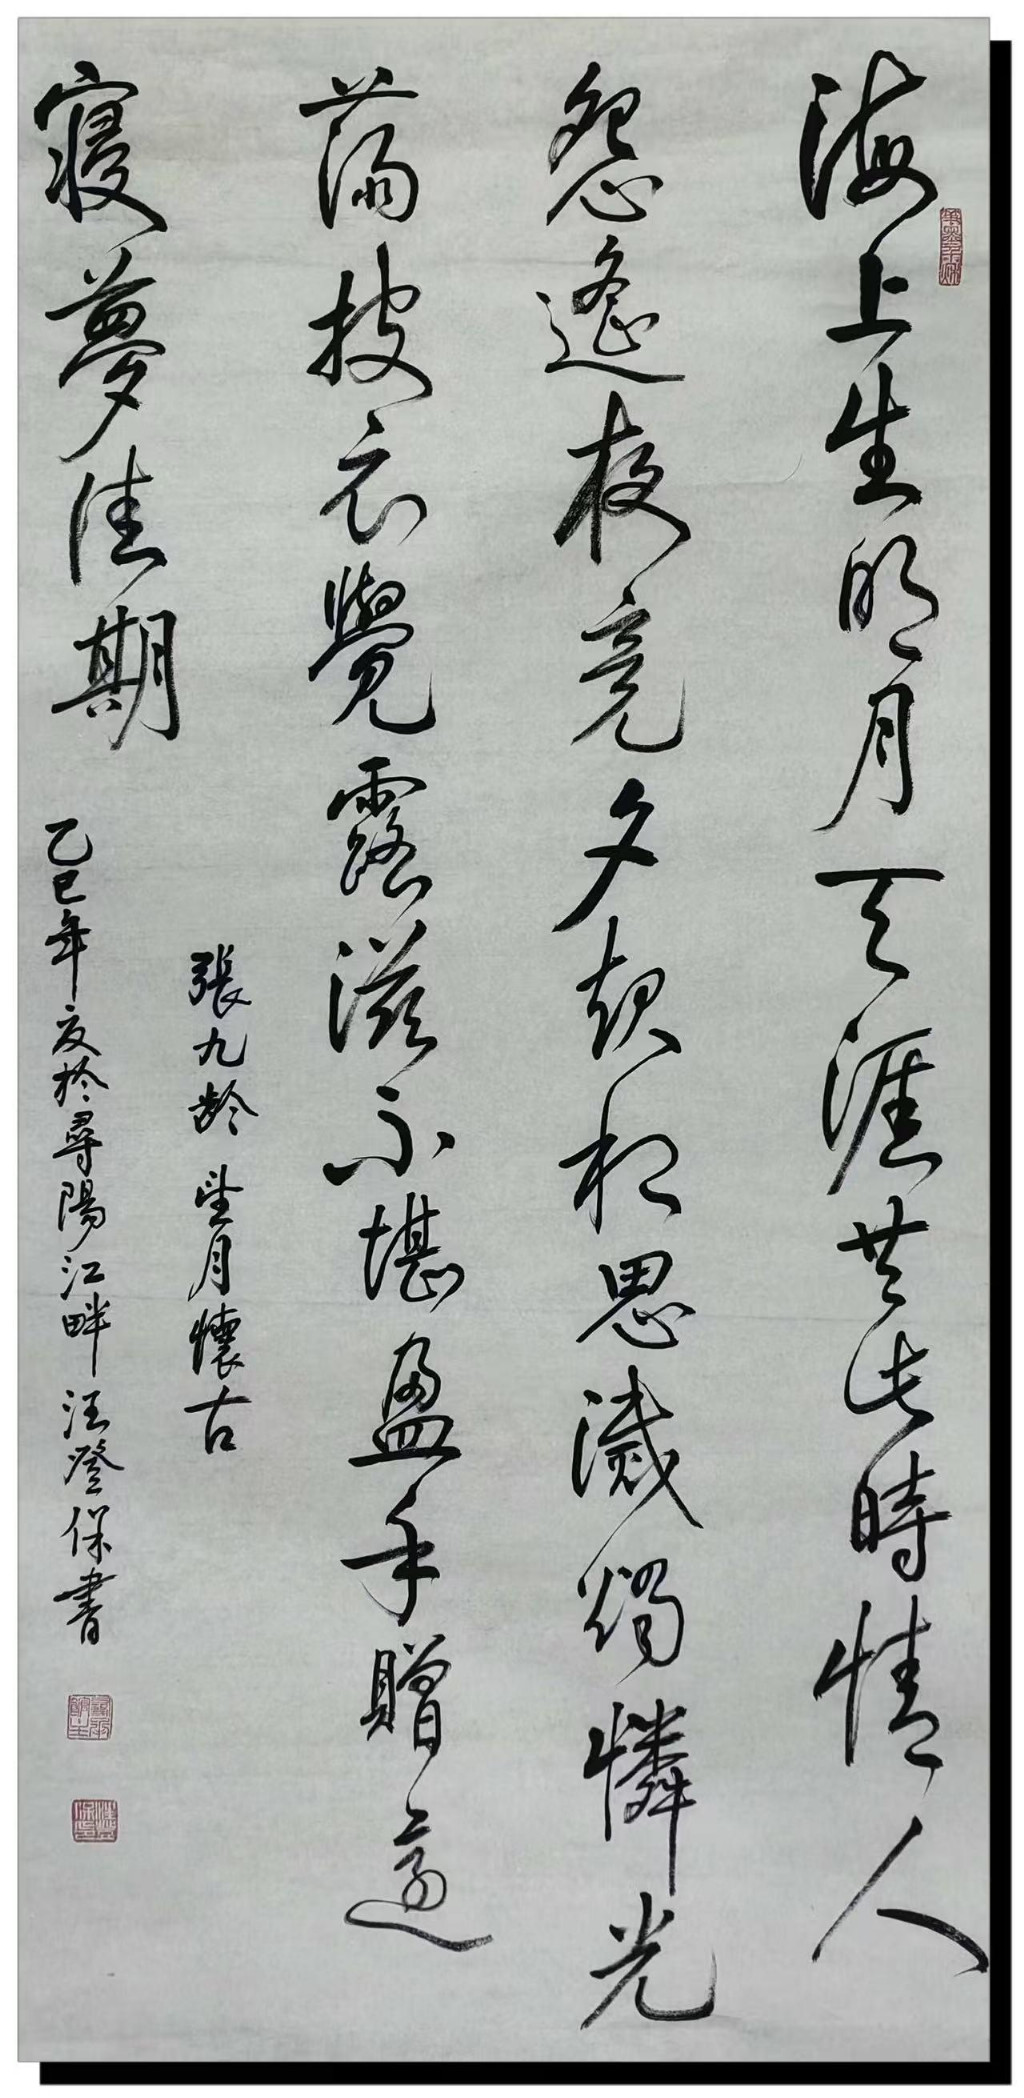 海上生明月天涯共此時情人
怨遙夜竟夕起相思滅燭憐光
滿披衣覺露滋不堪盈手贈還
寢夢佳期
張九齡望月懷古
乙巳年夏於尋陽江畔汪登保書